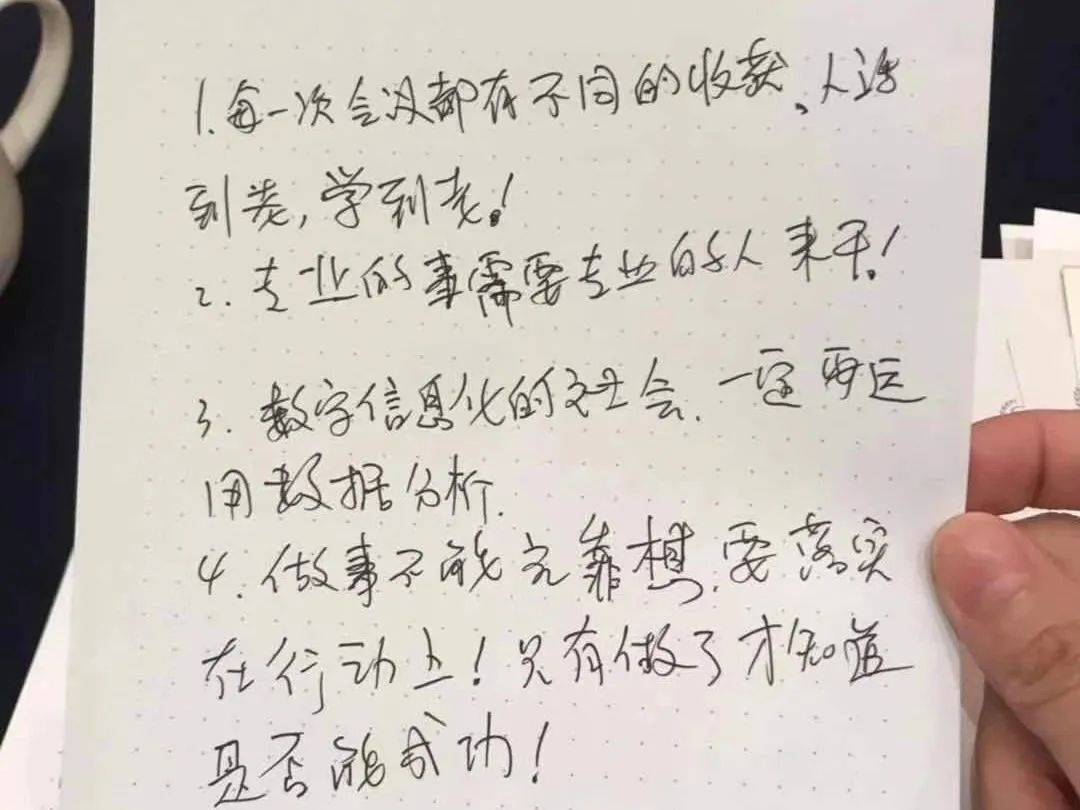 1.每一次会议都有不同的收获、人活
到老,学到老!
2.专业的事需要专业的人来干!
3.数字信息化的社会.一定要运
用数据分析.
4.做事不能光靠想.要落实
在行动上!只有做了才知道
是否能成功!